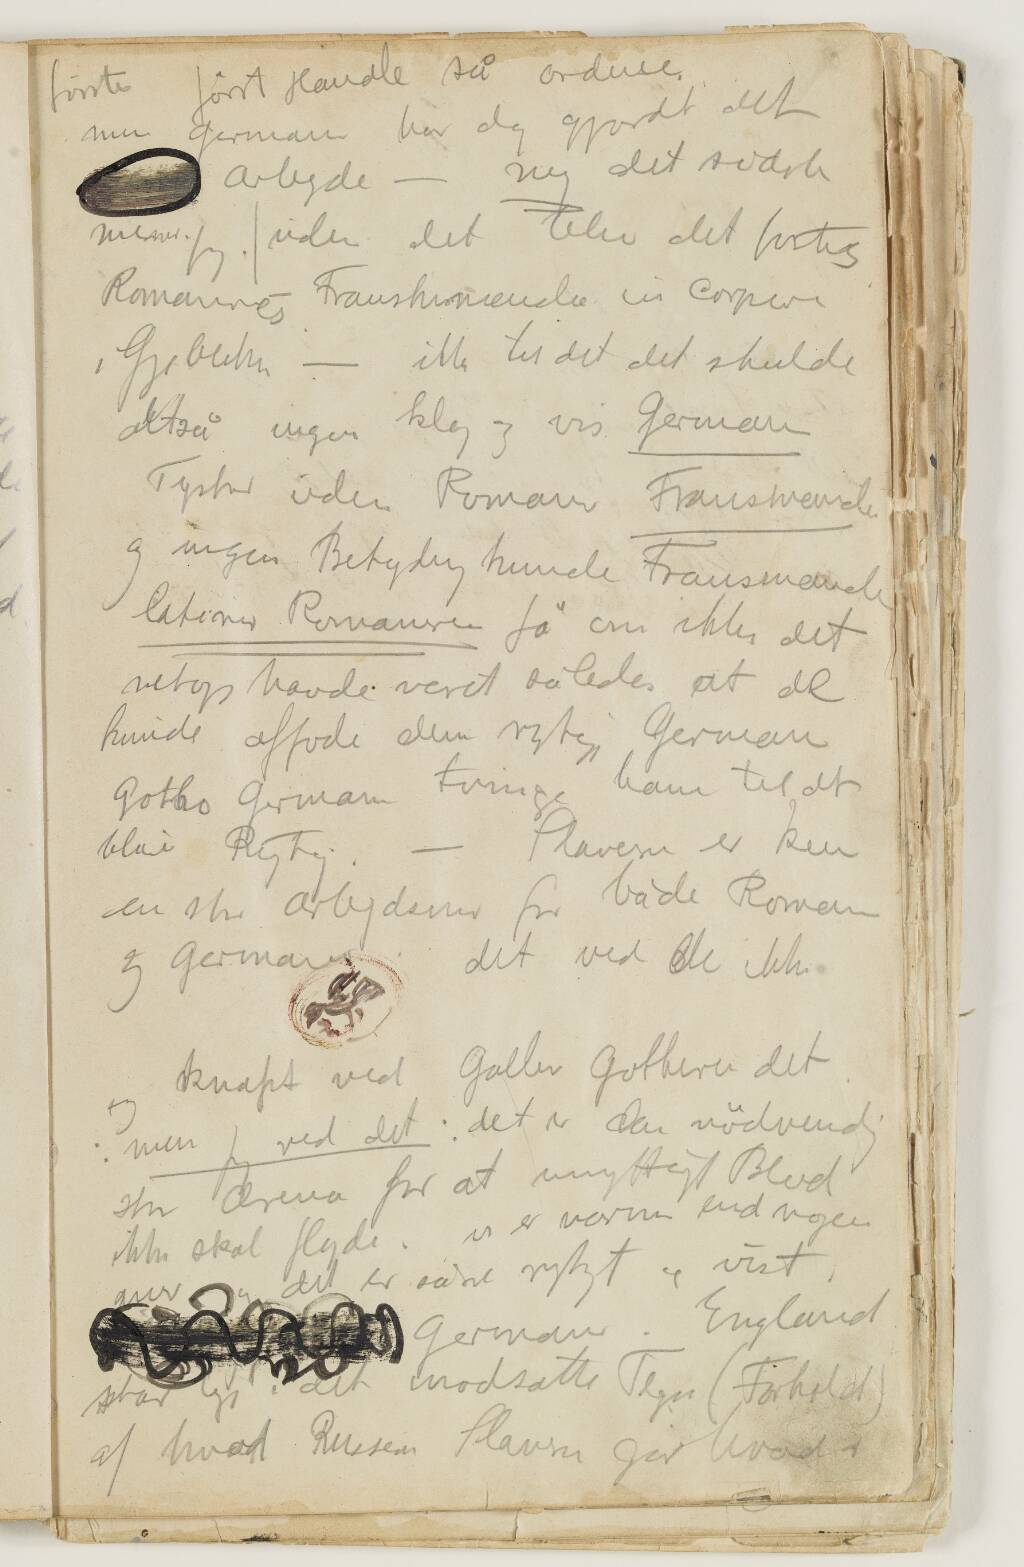 først handle så ordene.
men german har dog gjordt det
arbejde — nej det sidste
mener jeg / uden det det
Romanernes Franskmænde in corpore
i Øjeblikke — ikke til det det skulde
altså ingen klog og vis German
Tysker uden Romaner Franskmænde
og ingen Betydning kunde Fransmænde
latiner Romaneren få om ikke det
netop havde været således at de
kunde afføde den rygtig German
Gotho German tvinge ham til det
blive Rigtig. — Slaveren er kun
en stor arbejdsener for både Roman
og German det ved de ikke
og knapt ved Galler Gotherne det
: men jeg ved det : det er den nödvendig
stor Arena for at unyttigt Blod
ikke skal flyde. vi er varme end nogen
det er såre rygtigt og vist.
German. England
står i det modsatte Tegn (Forhold)
af hvad Russen Slaven gör hvad